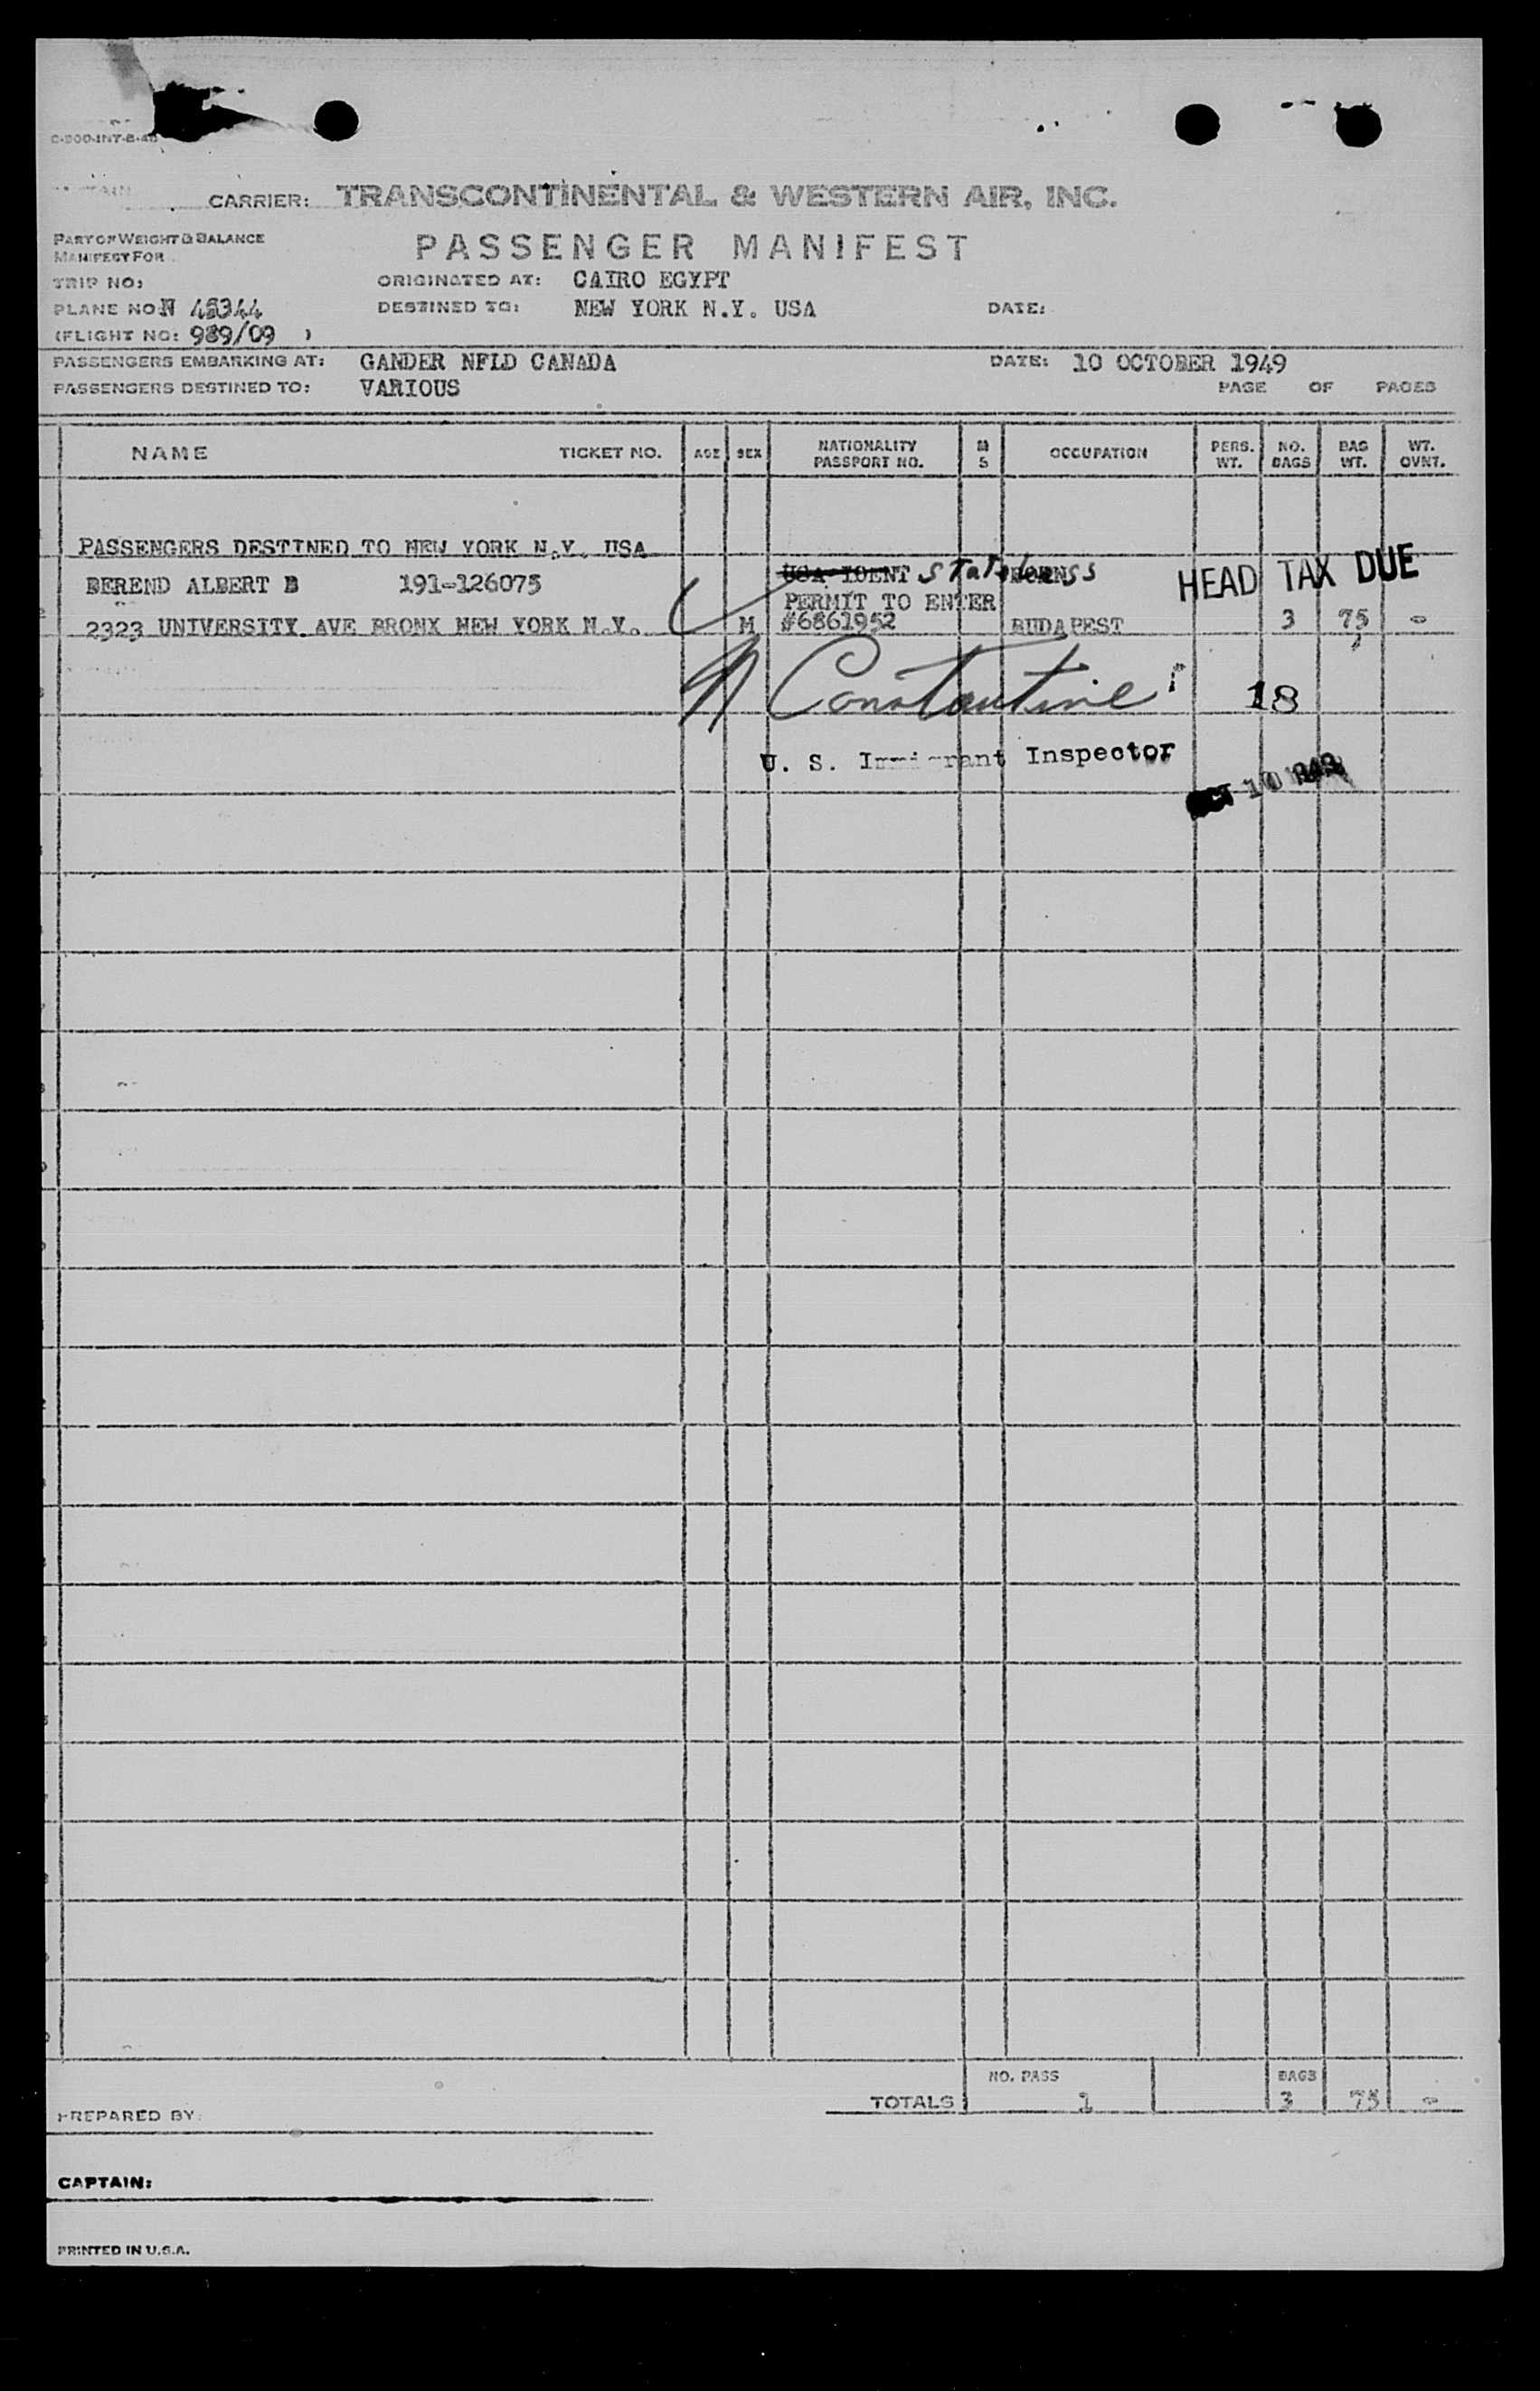 C-900-INT-8-48
CARRIER: TRANSCONTINENTAL & WESTERN AIR, INC.
PART OF WEIGHT & BALANCE
MANIFEST FOR
PASSENGER MANIFEST
TRIP NO:
ORIGINATED AT: CAIRO EGYPT
PLANE NO: N 45344
DESTINED TO: NEW YORK N.Y. USA
DATE:
(FLIGHT NO: 989/09 )
PASSENGERS EMBARKING AT: GANDER NFLD CANADA
DATE: 10 OCTOBER 1949
PASSENGERS DESTINED TO: VARIOUS
PAGE OF PAGES
NAME TICKET NO. AGE SEX NATIONALITY PASSPORT NO. M S OCCUPATION PERS. WT. NO. BAGS BAG WT. WT. OVNT.
PASSENGERS DESTINED TO NEW YORK N.Y. USA
BEREND ALBERT B 191-126075 USA IDENT Stateless BORN HEAD TAX DUE
PERMIT TO ENTER
2323 UNIVERSITY AVE BRONX NEW YORK N.Y. M #6861952 BUDAPEST 3 75 -
N Constantine 18
U. S. Immigrant Inspector
OCT 10 1949
NO. PASS BAGS
TOTALS 1 3 75 -
PREPARED BY:
CAPTAIN:
PRINTED IN U.S.A.